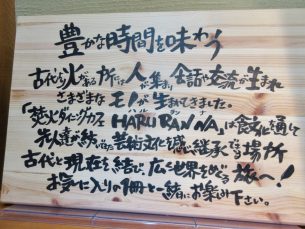 豊かな時間を味わう
古代から火がある所には人が集まり会話や交流が生まれ
さまざまなモノが生まれてきました。
「焚火ダイニングカフェ HARU BANNA」は食と化を通して
先人達が紡いできた芸術文化を感じ継承できる場所
古代と現在を結び、広い世界をめぐる旅へ！
お気に入りの1冊と一緒にお楽しみ下さい。